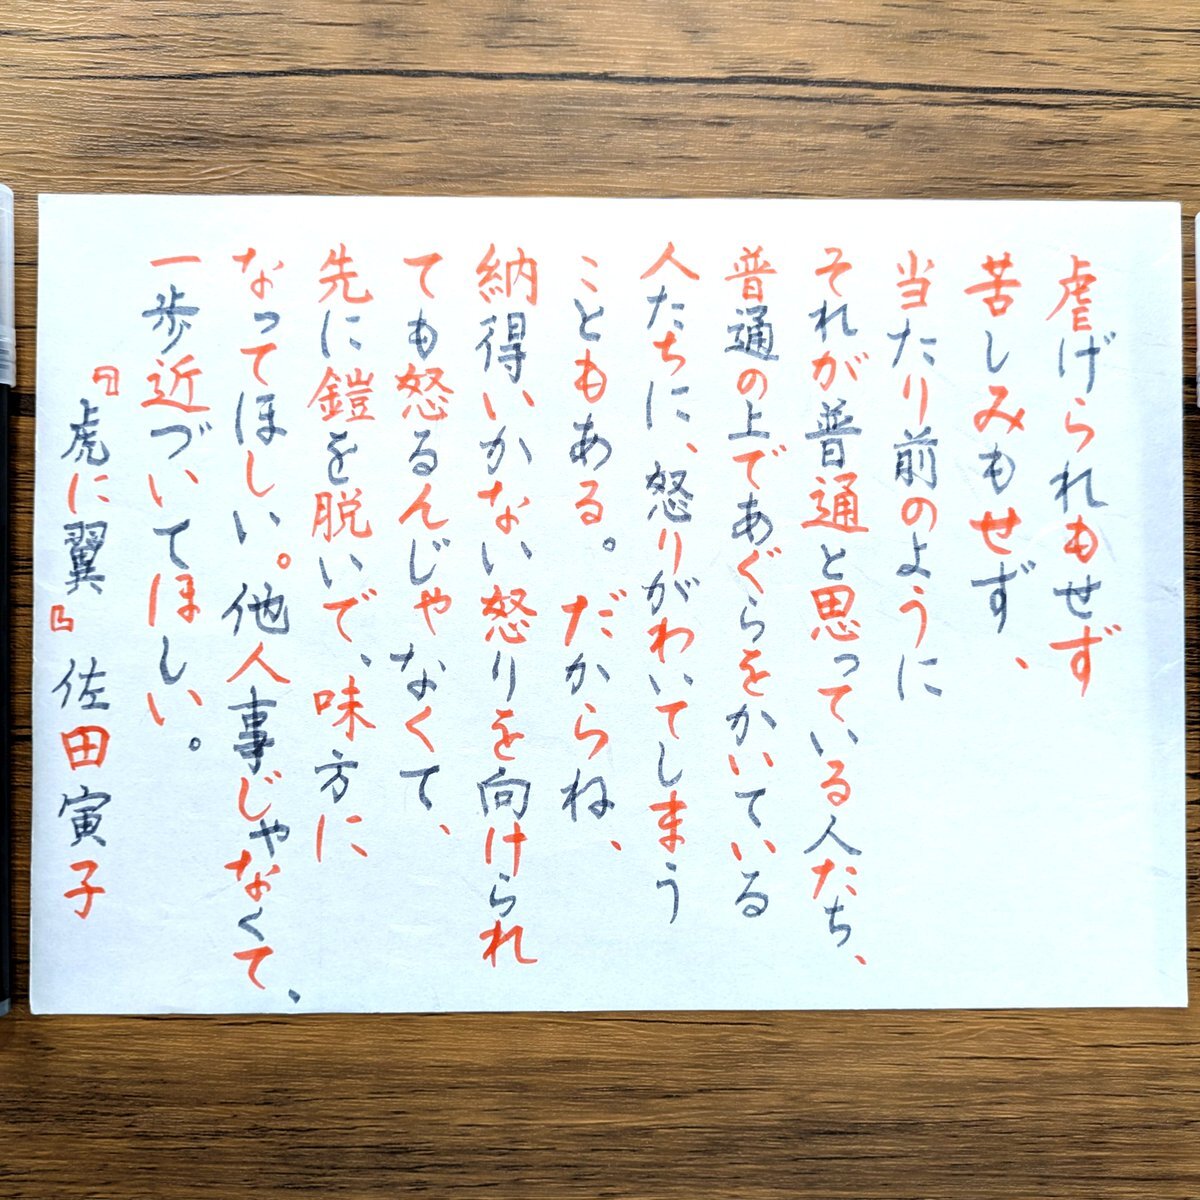 虐げられもせず
苦しみもせず、
当たり前のように
それが普通と思っている人たち、
普通の上であぐらをかいている
人たちに、怒りがわいてしまう
こともある。だからね、
納得いかない怒りを向けられ
ても怒るんじゃなくて、
先に鎧を脱いで、味方に
なってほしい。他人事じゃなくて、
一歩近づいてほしい。
『虎に翼』佐田寅子